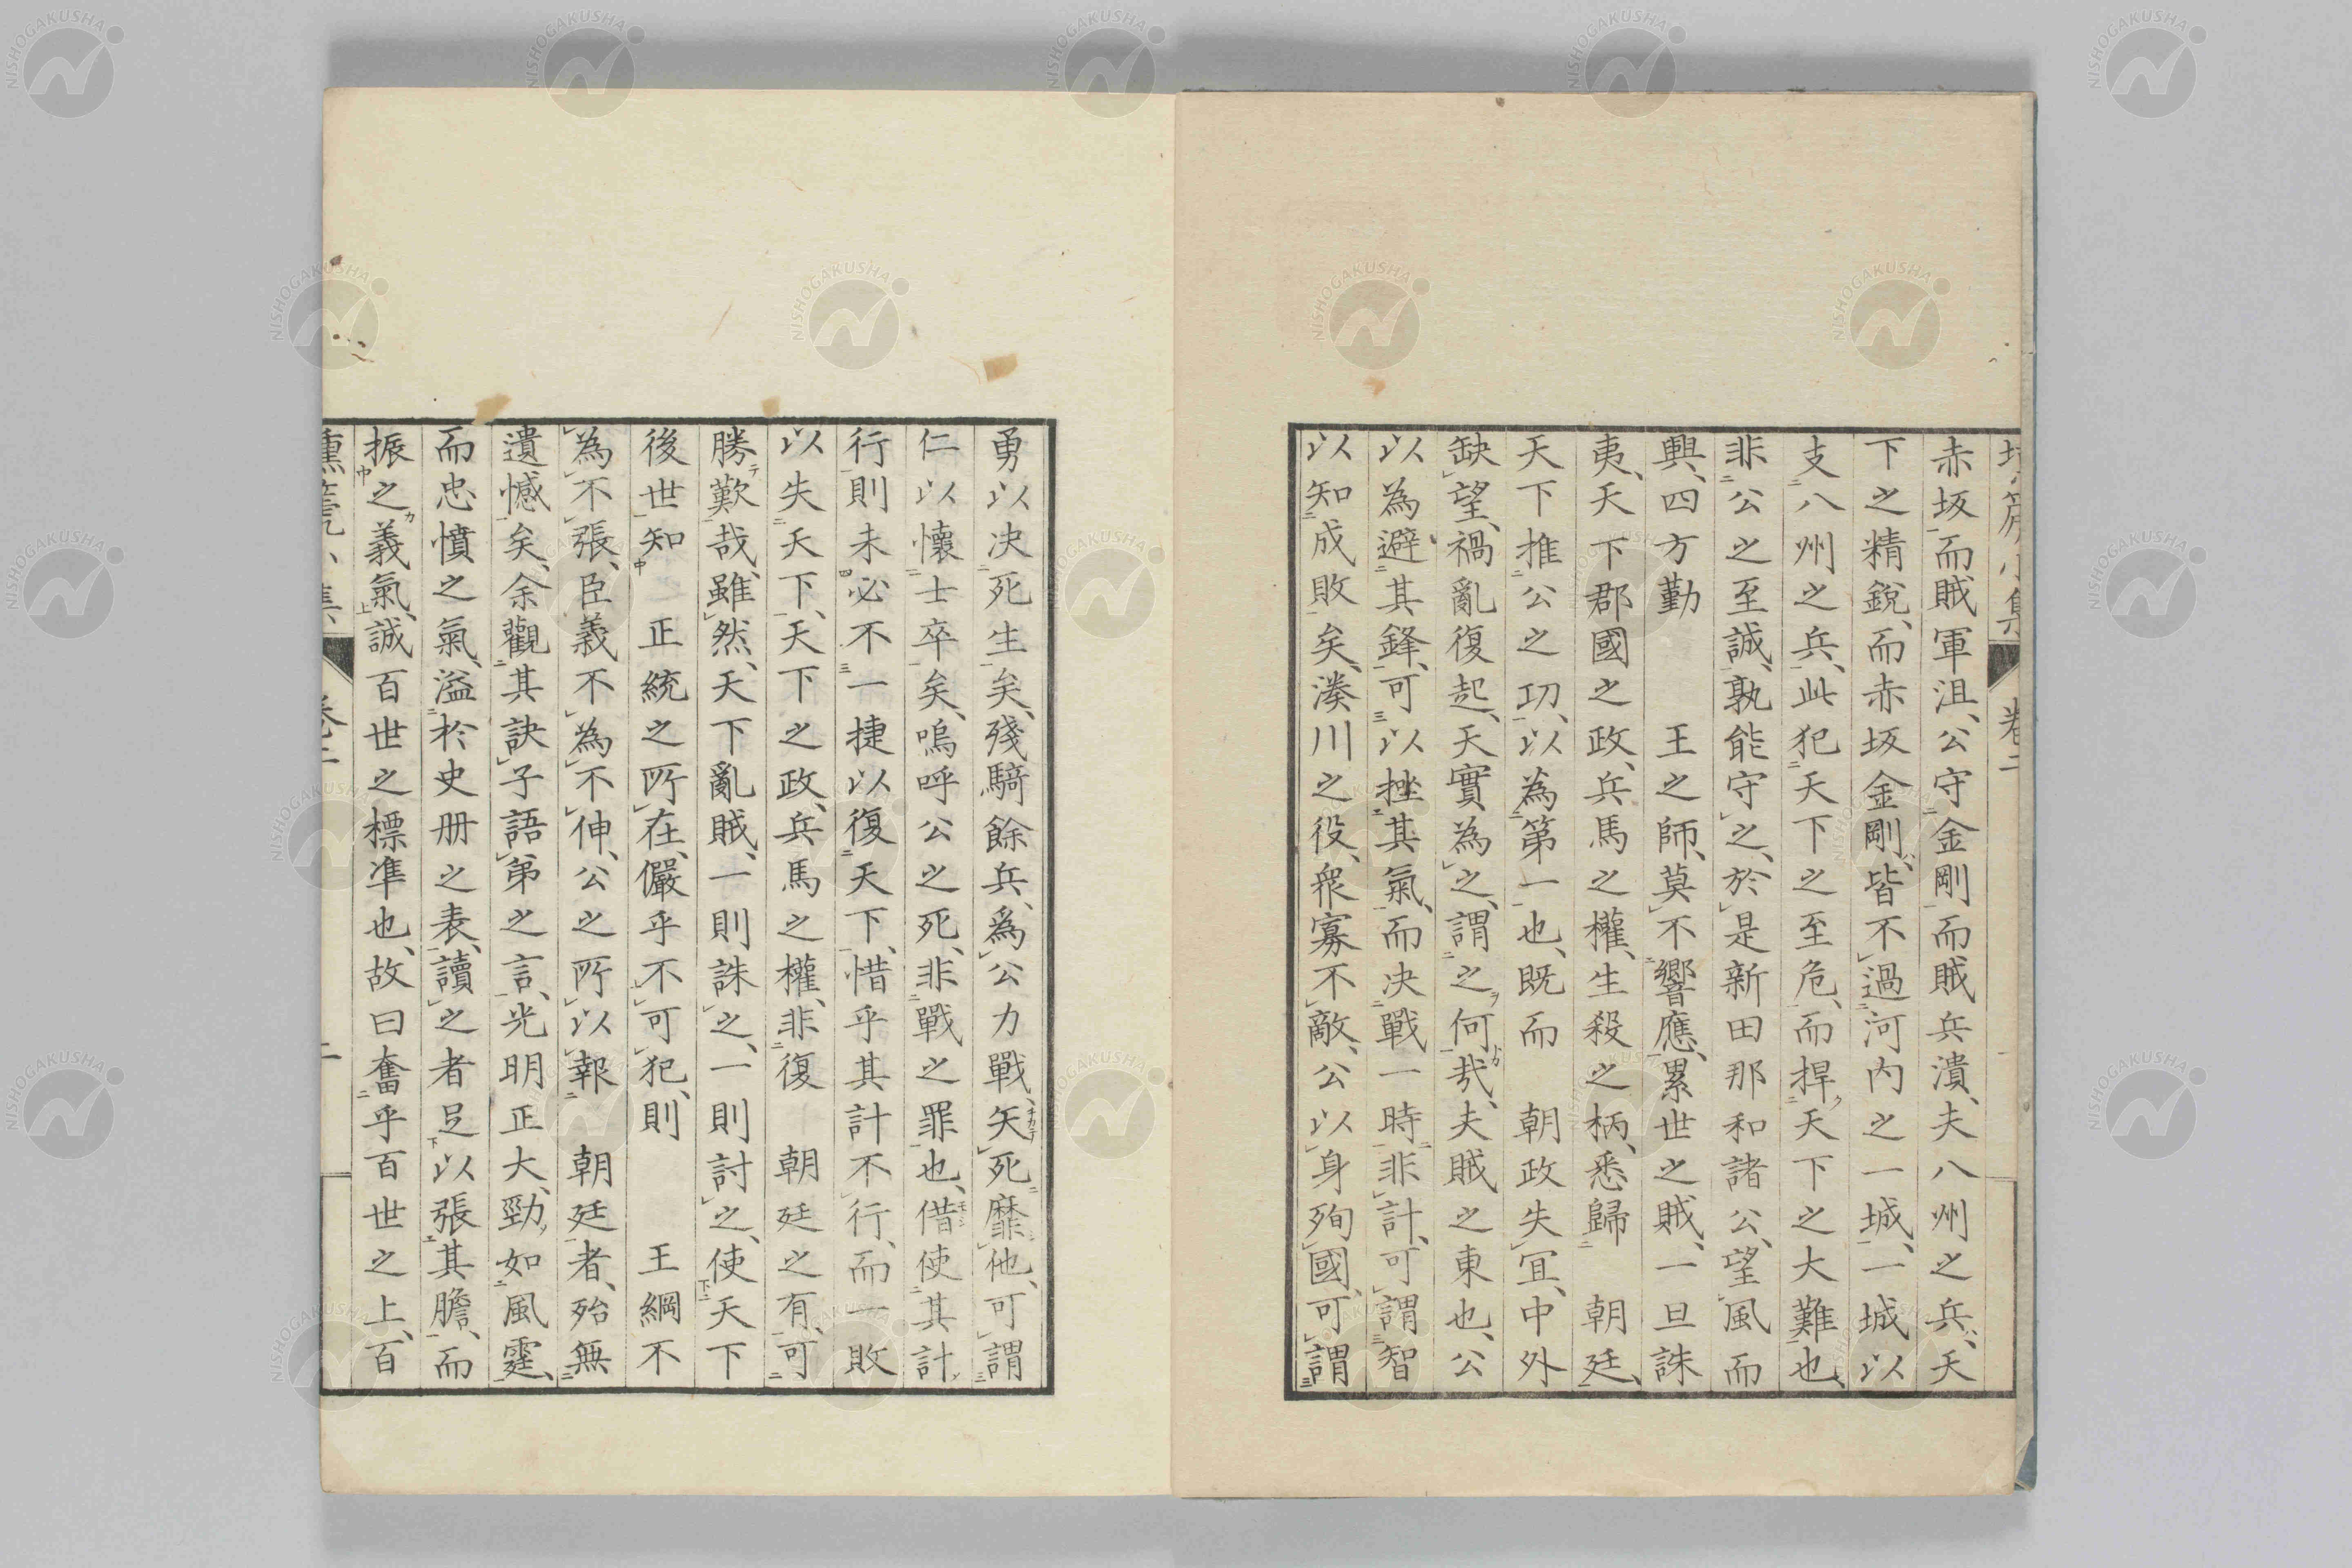 赤坂而賊軍沮、公守金剛而賊兵潰、夫八州之兵、天
下之精銳、而赤坂金剛、皆不過河内之一城、一城以
支八州之兵、此犯天下之至危、而捍天下之大難也、
非公之至誠、孰能守之、於是新田那和諸公、望風而
興、四方勤　王之師、莫不響應、累世之賊、一旦誅
夷、天下郡國之政、兵馬之權、生殺之柄、悉歸　朝廷、
天下推公之功、以為第一也、既而　朝政失宜、中外
缺望、禍亂復起、天實為之、謂之何哉、夫賊之東也、公
以為避其鋒、可以挫其氣、而决戰一時非計、可謂智
以知成敗矣、湊川之役、衆寡不敵、公以身殉國、可謂
勇以决死生矣、殘騎餘兵、爲公力戰、矢死靡他、可謂
仁以懷士卒矣、嗚呼公之死、非戰之罪也、借使其計
行則未必不一捷以復天下、惜乎其計不行、而一敗
以失天下、天下之政、兵馬之權、非復　朝廷之有、可
勝歎哉、雖然、天下亂賊、一則誅之、一則討之、使天下
後世知　正統之所在、儼乎不可犯、則　王綱不
為不張、臣義不為不伸、公之所以報　朝廷者、殆無
遺憾矣、余觀其訣子語第之言、光明正大、勁如風霆、
而忠憤之氣、溢於史册之表、讀之者足以張其膽、而
振之義氣、誠百世之標準也、故曰奮乎百世之上、百
卷二
NISHOGAKUSHA